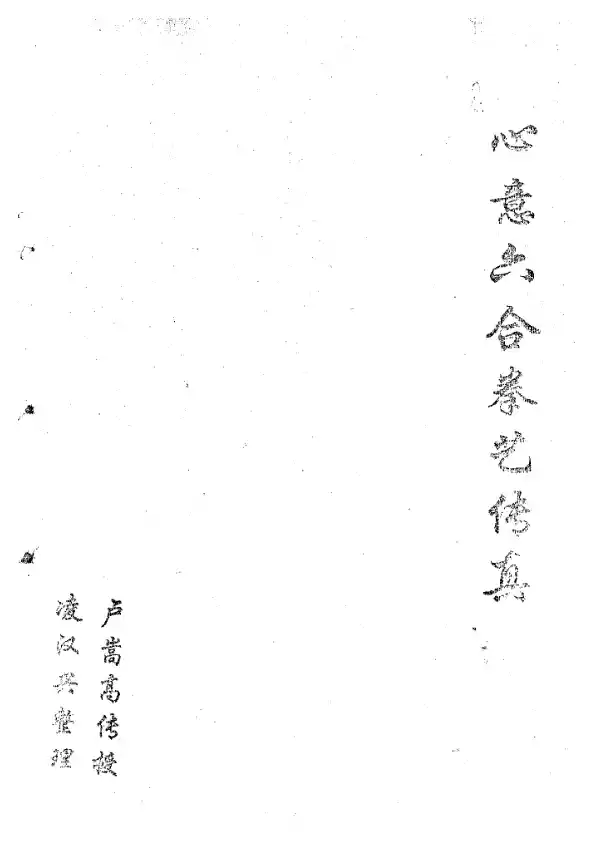 心意六合拳艺传真
卢嵩高传授
凌汉兴整理